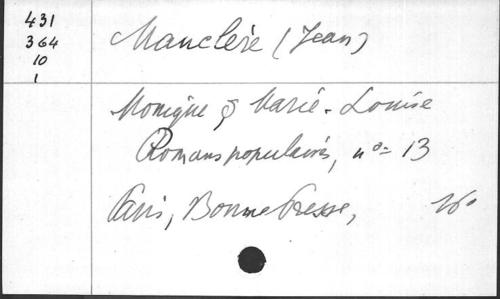 431
364
10
1
Mauclère (Jean)
Monique & Marie-Louise
Romans populaires, n°= 13
Paris, Bonne Presse, 16°